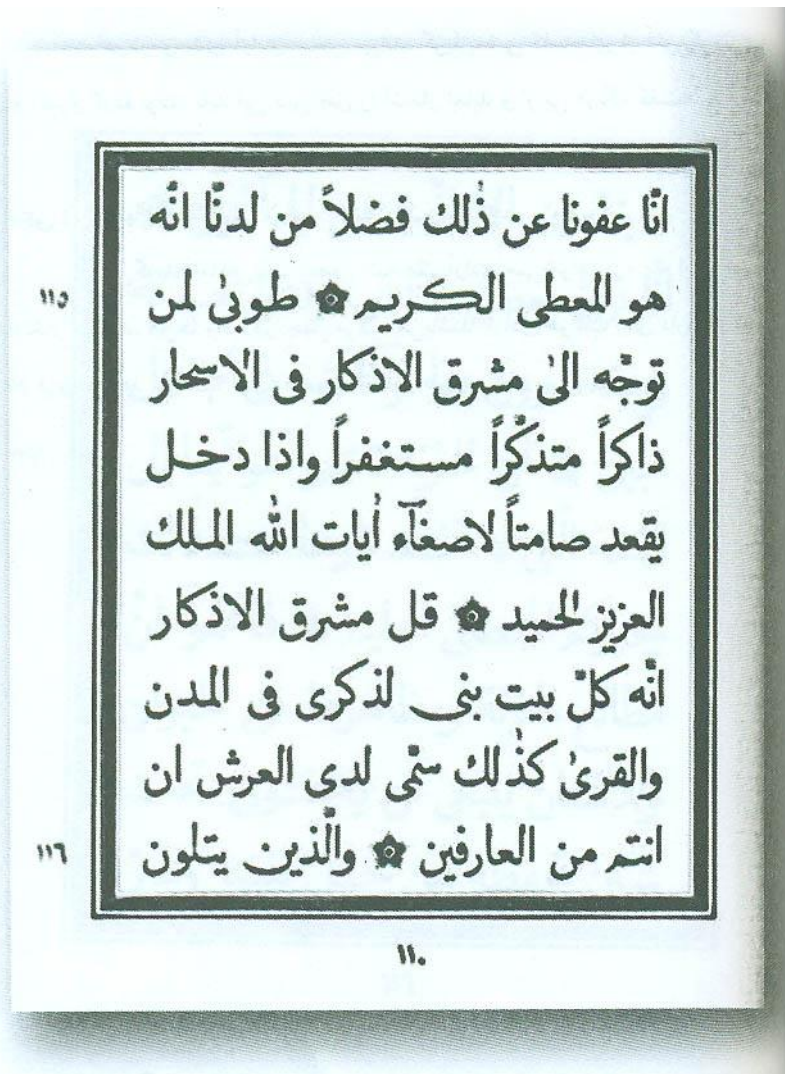 انّا عفونا عن ذٰلك فضلاً من لدنّا انّه
١١٥ هو المعطى الكريم ۞ طوبىٰ لمن
توجّه الىٰ مشرق الاذكار فى الاسحار
ذاكراً متذكّراً مستغفراً واذا دخل
يقعد صامتاً لاصغآء أيات الله الملك
العزيز الحميد ۞ قل مشرق الاذكار
انّه كلّ بيت بنى لذكرى فى المدن
والقرىٰ كذٰلك سمّى لدى العرش ان
١١٦ انتم من العارفين ۞ والّذين يتلون
١١٠